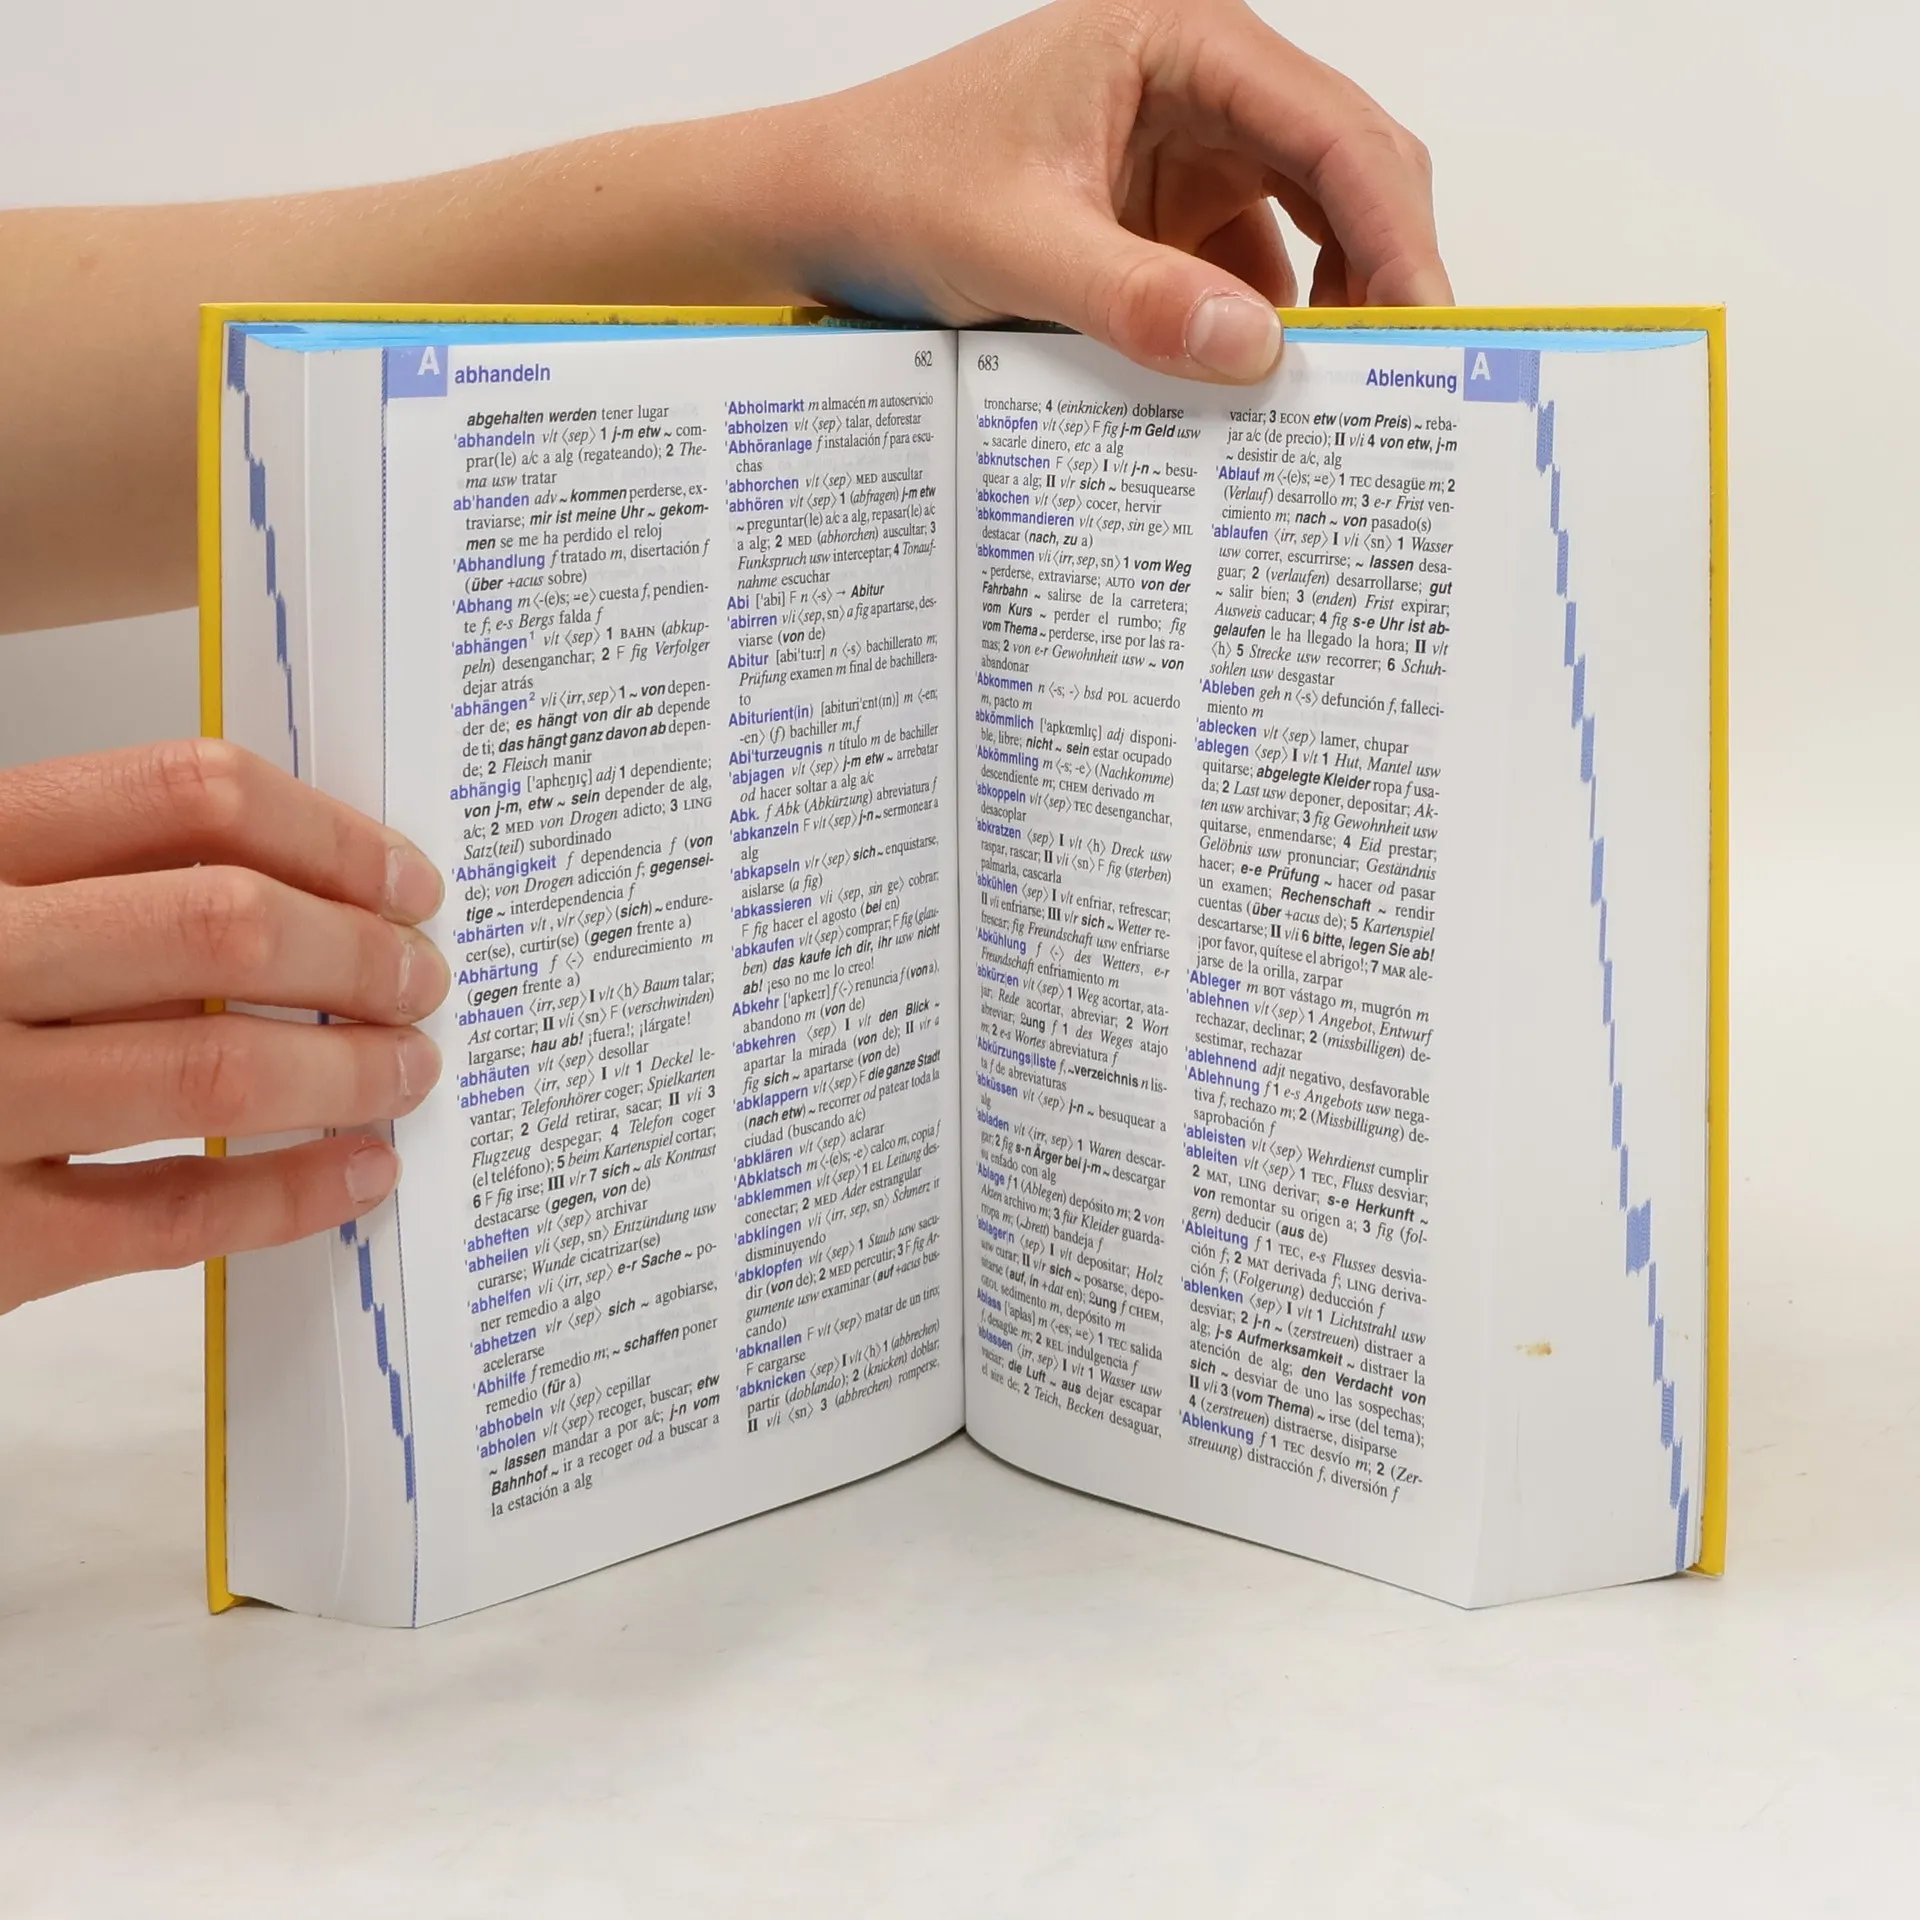 A abhandeln
682
abgehalten werden tener lugar
'abhandeln v/t ⟨sep⟩ 1 j-m etw ~ com-
prar(le) a/c a alg (regateando); 2 The-
ma usw tratar
ab'handen adv ~ kommen perderse, ex-
traviarse; mir ist meine Uhr ~ gekom-
men se me ha perdido el reloj
'Abhandlung f tratado m, disertación f
(über +acus sobre)
'Abhang m ⟨-(e)s; ⸚e⟩ cuesta f, pendien-
te f; e-s Bergs falda f
'abhängen¹ v/t ⟨sep⟩ 1 BAHN (abkup-
peln) desenganchar; 2 F fig Verfolger
dejar atrás
'abhängen² v/i ⟨irr, sep⟩ 1 ~ von depen-
der de; es hängt von dir ab depende
de ti; das hängt ganz davon ab depen-
de; 2 Fleisch manir
abhängig ['aphɛŋıç] adj 1 dependiente;
von j-m, etw ~ sein depender de alg,
a/c; 2 MED von Drogen adicto; 3 LING
Satz(teil) subordinado
'Abhängigkeit f dependencia f (von
de); von Drogen adicción f; gegensei-
tige ~ interdependencia f
'abhärten v/t, v/r ⟨sep⟩ (sich) ~ endure-
cer(se), curtir(se) (gegen frente a)
'Abhärtung f ⟨-⟩ endurecimiento m
(gegen frente a)
'abhauen ⟨irr, sep⟩ I v/t ⟨h⟩ Baum talar;
Ast cortar; II v/i ⟨sn⟩ F (verschwinden)
largarse; hau ab! ¡fuera!; ¡lárgate!
'abhäuten v/t ⟨sep⟩ desollar
'abheben ⟨irr, sep⟩ I v/t 1 Deckel le-
vantar; Telefonhörer coger; Spielkarten
cortar; 2 Geld retirar, sacar; II v/i 3
Flugzeug despegar; 4 Telefon coger
(el teléfono); 5 beim Kartenspiel cortar;
6 F fig irse; III v/r 7 sich ~ als Kontrast
destacarse (gegen, von de)
'abheften v/t ⟨sep⟩ archivar
'abheilen v/i ⟨sep, sn⟩ Entzündung usw
curarse; Wunde cicatrizar(se)
'abhelfen v/i ⟨irr, sep⟩ e-r Sache ~ po-
ner remedio a algo
'abhetzen v/r ⟨sep⟩ sich ~ agobiarse,
acelerarse
'Abhilfe f remedio m; ~ schaffen poner
remedio (für a)
'abhobeln v/t ⟨sep⟩ cepillar
'abholen v/t ⟨sep⟩ recoger, buscar; etw
~ lassen mandar a por a/c; j-n vom
Bahnhof ~ ir a recoger od a buscar a
la estación a alg
'Abholmarkt m almacén m autoservicio
'abholzen v/t ⟨sep⟩ talar, deforestar
'Abhöranlage f instalación f para escu-
chas
'abhorchen v/t ⟨sep⟩ MED auscultar
'abhören v/t ⟨sep⟩ 1 (abfragen) j-m etw
~ preguntar(le) a/c a alg, repasar(le) a/c
a alg; 2 MED (abhorchen) auscultar; 3
Funkspruch usw interceptar; 4 Tonauf-
nahme escuchar
Abi ['abi] F n ⟨-s⟩ → Abitur
'abirren v/i ⟨sep, sn⟩ a fig apartarse, des-
viarse (von de)
Abitur [abi'tu:r] n ⟨-s⟩ bachillerato m;
Prüfung examen m final de bachillera-
to
Abiturient(in) [abituri'ɛnt(ın)] m ⟨-en;
-en⟩ (f) bachiller m,f
Abi'turzeugnis n título m de bachiller
'abjagen v/t ⟨sep⟩ j-m etw ~ arrebatar
od hacer soltar a alg a/c
Abk. f Abk (Abkürzung) abreviatura f
'abkanzeln F v/t ⟨sep⟩ j-n ~ sermonear a
alg
'abkapseln v/r ⟨sep⟩ sich ~ enquistarse,
aislarse (a fig)
'abkassieren v/i ⟨sep, sin ge⟩ cobrar;
F fig hacer el agosto (bei en)
'abkaufen v/t ⟨sep⟩ comprar; F fig (glau-
ben) das kaufe ich dir, ihr usw nicht
ab! ¡eso no me lo creo!
Abkehr ['apke:r] f ⟨-⟩ renuncia f (von a),
abandono m (von de)
'abkehren ⟨sep⟩ I v/t den Blick ~
apartar la mirada (von de); II v/r a
fig sich ~ apartarse (von de)
'abklappern v/t ⟨sep⟩ F die ganze Stadt
(nach etw) ~ recorrer od patear toda la
ciudad (buscando a/c)
'abklären v/t ⟨sep⟩ aclarar
'Abklatsch m ⟨-(e)s; -e⟩ calco m, copia f
'abklemmen v/t ⟨sep⟩ 1 EL Leitung des-
conectar; 2 MED Ader estrangular
'abklingen v/i ⟨irr, sep, sn⟩ Schmerz ir
disminuyendo
'abklopfen v/t ⟨sep⟩ 1 Staub usw sacu-
dir (von de); 2 MED percutir; 3 F fig Ar-
gumente usw examinar (auf +acus bus-
cando)
'abknallen F v/t ⟨sep⟩ matar de un tiro;
F cargarse
'abknicken ⟨sep⟩ I v/t ⟨h⟩ 1 (abbrechen)
partir (doblando); 2 (knicken) doblar;
II v/i ⟨sn⟩ 3 (abbrechen) romperse,
683
Ablenkung A
troncharse; 4 (einknicken) doblarse
'abknöpfen v/t ⟨sep⟩ F fig j-m Geld usw
~ sacarle dinero, etc a alg
'abknutschen F ⟨sep⟩ I v/t j-n ~ besu-
quear a alg; II v/r sich ~ besuquearse
'abkochen v/t ⟨sep⟩ cocer, hervir
'abkommandieren v/t ⟨sep, sin ge⟩ MIL
destacar (nach, zu a)
'abkommen v/i ⟨irr, sep, sn⟩ 1 vom Weg
~ perderse, extraviarse; AUTO von der
Fahrbahn ~ salirse de la carretera;
vom Kurs ~ perder el rumbo; fig
vom Thema ~ perderse, irse por las ra-
mas; 2 von e-r Gewohnheit usw ~ von
abandonar
'Abkommen n ⟨-s; -⟩ bsd POL acuerdo
m, pacto m
abkömmlich ['apkœmlıç] adj disponi-
ble, libre; nicht ~ sein estar ocupado
'Abkömmling m ⟨-s; -e⟩ (Nachkomme)
descendiente m; CHEM derivado m
'abkoppeln v/t ⟨sep⟩ TEC desenganchar,
desacoplar
'abkratzen ⟨sep⟩ I v/t ⟨h⟩ Dreck usw
raspar, rascar; II v/i ⟨sn⟩ F fig (sterben)
palmarla, cascarla
'abkühlen ⟨sep⟩ I v/t enfriar, refrescar;
II v/i enfriarse; III v/r sich ~ Wetter re-
frescar; fig Freundschaft usw enfriarse
'Abkühlung f ⟨-⟩ des Wetters, e-r
Freundschaft enfriamiento m
'abkürz|en v/t ⟨sep⟩ 1 Weg acortar, ata-
jar; Rede acortar, abreviar; 2 Wort
abreviar; 2ung f 1 des Weges atajo
m; 2 e-s Wortes abreviatura f
'Abkürzungs|liste f, ~verzeichnis n lis-
ta f de abreviaturas
'abküssen v/t ⟨sep⟩ j-n ~ besuquear a
alg
'abladen v/t ⟨irr, sep⟩ 1 Waren descar-
gar; 2 fig s-n Ärger bei j-m ~ descargar
su enfado con alg
'Ablage f 1 (Ablegen) depósito m; 2 von
Akten archivo m; 3 für Kleider guarda-
rropa m; (~brett) bandeja f
'ablager|n ⟨sep⟩ I v/t depositar; Holz
usw curar; II v/r sich ~ posarse, depo-
sitarse (auf, in +dat en); 2ung f CHEM,
GEOL sedimento m, depósito m
Ablass ['aplas] m ⟨-es; ⸚e⟩ 1 TEC salida
f, desagüe m; 2 REL indulgencia f
'ablassen ⟨irr, sep⟩ I v/t 1 Wasser usw
vaciar; die Luft ~ aus dejar escapar
el aire de; 2 Teich, Becken desaguar,
vaciar; 3 ECON etw (vom Preis) ~ reba-
jar a/c (de precio); II v/i 4 von etw, j-m
~ desistir de a/c, alg
'Ablauf m ⟨-(e)s; ⸚e⟩ 1 TEC desagüe m; 2
(Verlauf) desarrollo m; 3 e-r Frist ven-
cimiento m; nach ~ von pasado(s)
'ablaufen ⟨irr, sep⟩ I v/i ⟨sn⟩ 1 Wasser
usw correr, escurrirse; ~ lassen desa-
guar; 2 (verlaufen) desarrollarse; gut
~ salir bien; 3 (enden) Frist expirar;
Ausweis caducar; 4 fig s-e Uhr ist ab-
gelaufen le ha llegado la hora; II v/t
⟨h⟩ 5 Strecke usw recorrer; 6 Schuh-
sohlen usw desgastar
'Ableben geh n ⟨-s⟩ defunción f, falleci-
miento m
'ablecken v/t ⟨sep⟩ lamer, chupar
'ablegen ⟨sep⟩ I v/t 1 Hut, Mantel usw
quitarse; abgelegte Kleider ropa f usa-
da; 2 Last usw deponer, depositar; Ak-
ten usw archivar; 3 fig Gewohnheit usw
quitarse, enmendarse; 4 Eid prestar;
Gelöbnis usw pronunciar; Geständnis
hacer; e-e Prüfung ~ hacer od pasar
un examen; Rechenschaft ~ rendir
cuentas (über +acus de); 5 Kartenspiel
descartarse; II v/i 6 bitte, legen Sie ab!
¡por favor, quítese el abrigo!; 7 MAR ale-
jarse de la orilla, zarpar
'Ableger m BOT vástago m, mugrón m
'ablehnen v/t ⟨sep⟩ 1 Angebot, Entwurf
rechazar, declinar; 2 (missbilligen) de-
sestimar, rechazar
'ablehnend adjt negativo, desfavorable
'Ablehnung f 1 e-s Angebots usw nega-
tiva f, rechazo m; 2 (Missbilligung) de-
saprobación f
'ableisten v/t ⟨sep⟩ Wehrdienst cumplir
'ableiten v/t ⟨sep⟩ 1 TEC, Fluss desviar;
2 MAT, LING derivar; s-e Herkunft ~
von remontar su origen a; 3 fig (fol-
gern) deducir (aus de)
'Ableitung f 1 TEC, e-s Flusses desvia-
ción f; 2 MAT derivada f; LING deriva-
ción f; (Folgerung) deducción f
'ablenken ⟨sep⟩ I v/t 1 Lichtstrahl usw
desviar; 2 j-n ~ (zerstreuen) distraer a
alg; j-s Aufmerksamkeit ~ distraer la
atención de alg; den Verdacht von
sich ~ desviar de uno las sospechas;
II v/i 3 (vom Thema) ~ irse (del tema);
4 (zerstreuen) distraerse, disiparse
'Ablenkung f 1 TEC desvío m; 2 (Zer-
streuung) distracción f, diversión f